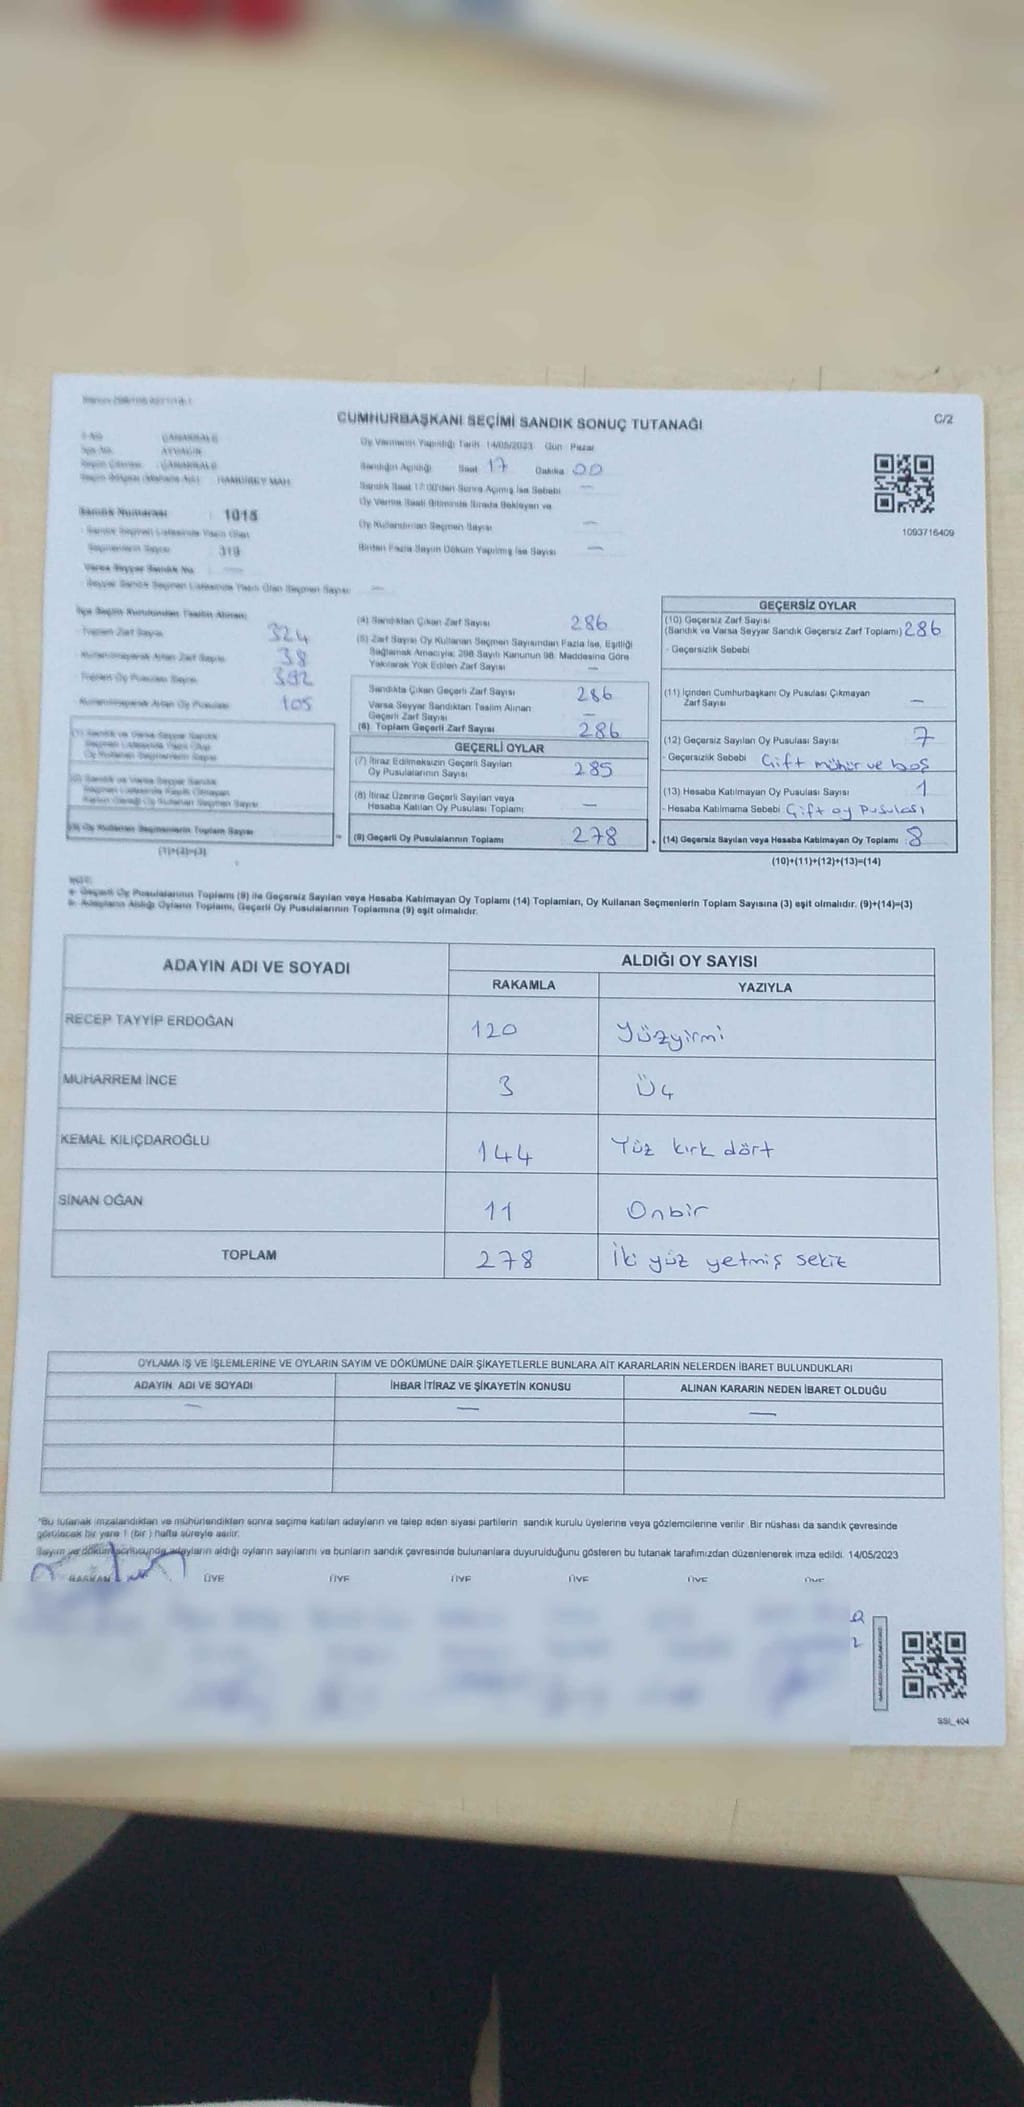 C/2
CUMHURBAŞKANI SEÇİMİ SANDIK SONUÇ TUTANAĞI
ÇANAKKALE
AYVACIK
ÇANAKKALE
HAMDİBEY MAH.
Oy Vermenin Yapıldığı Tarih 14/05/2023 Gün Pazar
Sandığın Açıldığı Saat 17 Dakika 00
Sandık Saat 17:00'den Sonra Açılmış İse Sebebi —
Oy Verme Saati Bitiminde Sırada Bekleyen ve
Oy Kullandırılan Seçmen Sayısı —
Birden Fazla Sayım Döküm Yapılmış İse Sayısı —
1093716409
Sandık Numarası : 1015
Sandık Seçmen Listesinde Yazılı Olan
Seçmenlerin Sayısı 319
Varsa Seyyar Sandık No —
Seyyar Sandık Seçmen Listesinde Yazılı Olan Seçmen Sayısı —
İlçe Seçim Kurulundan Teslim Alınan
Toplam Zarf Sayısı 324
Kullanılmayarak Artan Zarf Sayısı 38
Toplam Oy Pusulası Sayısı 392
Kullanılmayarak Artan Oy Pusulası 105
(1) Sandık ve Varsa Seyyar Sandık
Seçmen Listesinde Yazılı Olup
Oy Kullanan Seçmenlerin Sayısı
(3) Oy Kullanan Seçmenlerin Toplam Sayısı
(1)+(2)=(3)
(4) Sandıktan Çıkan Zarf Sayısı 286
(5) Zarf Sayısı Oy Kullanan Seçmen Sayısından Fazla İse, Eşitliği
Sağlamak Amacıyla; 298 Sayılı Kanunun 98. Maddesine Göre
Yakılarak Yok Edilen Zarf Sayısı —
Sandıkta Çıkan Geçerli Zarf Sayısı 286
Varsa Seyyar Sandıktan Teslim Alınan
Geçerli Zarf Sayısı —
(6) Toplam Geçerli Zarf Sayısı 286
GEÇERLİ OYLAR
(7) İtiraz Edilmeksizin Geçerli Sayılan
Oy Pusulalarının Sayısı 285
(8) İtiraz Üzerine Geçerli Sayılan veya
Hesaba Katılan Oy Pusulası Toplamı —
= (9) Geçerli Oy Pusulalarının Toplamı 278
GEÇERSİZ OYLAR
(10) Geçersiz Zarf Sayısı
(Sandık ve Varsa Seyyar Sandık Geçersiz Zarf Toplamı) 286
- Geçersizlik Sebebi
(11) İçinden Cumhurbaşkanı Oy Pusulası Çıkmayan
Zarf Sayısı —
(12) Geçersiz Sayılan Oy Pusulası Sayısı 7
- Geçersizlik Sebebi Çift mühür ve boş
(13) Hesaba Katılmayan Oy Pusulası Sayısı 1
- Hesaba Katılmama Sebebi Çift oy Pusulası
+ (14) Geçersiz Sayılan veya Hesaba Katılmayan Oy Toplamı : 8
(10)+(11)+(12)+(13)=(14)
NOT:
a- Geçerli Oy Pusulalarının Toplamı (9) ile Geçersiz Sayılan veya Hesaba Katılmayan Oy Toplamı (14) Toplamları, Oy Kullanan Seçmenlerin Toplam Sayısına (3) eşit olmalıdır. (9)+(14)=(3)
b- Adayların Aldığı Oyların Toplamı, Geçerli Oy Pusulalarının Toplamına (9) eşit olmalıdır.
ADAYIN ADI VE SOYADI
ALDIĞI OY SAYISI
RAKAMLA YAZIYLA
RECEP TAYYİP ERDOĞAN 120 Yüzyirmi
MUHARREM İNCE 3 Üç
KEMAL KILIÇDAROĞLU 144 Yüz kırk dört
SİNAN OĞAN 11 Onbir
TOPLAM 278 İki yüz yetmiş sekiz
OYLAMA İŞ VE İŞLEMLERİNE VE OYLARIN SAYIM VE DÖKÜMÜNE DAİR ŞİKAYETLERLE BUNLARA AİT KARARLARIN NELERDEN İBARET BULUNDUKLARI
ADAYIN ADI VE SOYADI İHBAR İTİRAZ VE ŞİKAYETİN KONUSU ALINAN KARARIN NEDEN İBARET OLDUĞU
— — —
"Bu tutanak imzalandıktan ve mühürlendikten sonra seçime katılan adayların ve talep eden siyasi partilerin sandık kurulu üyelerine veya gözlemcilerine verilir. Bir nüshası da sandık çevresinde
görülecek bir yere 1 (bir) hafta süreyle asılır.
Sayım ve döküm sonucunda adayların aldığı oyların sayılarını ve bunların sandık çevresinde bulunanlara duyurulduğunu gösteren bu tutanak tarafımızdan düzenlenerek imza edildi. 14/05/2023
BAŞKAN ÜYE ÜYE ÜYE ÜYE ÜYE ÜYE
SSI_404